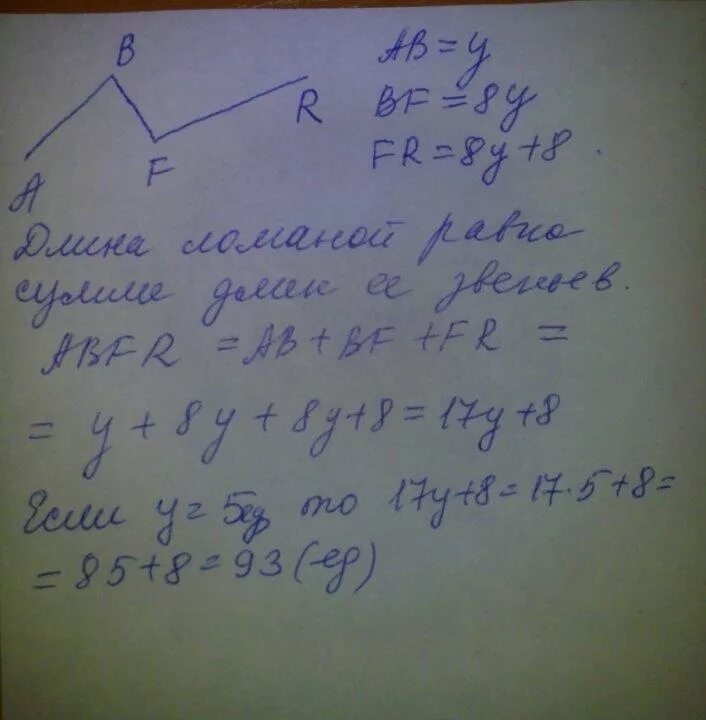 B
R
F
A
AB = y
BF = 8y
FR = 8y + 8 .
Длина ломаной равна
сумме длин ее звеньев.
ABFR = AB + BF + FR =
= y + 8y + 8y + 8 = 17y + 8
Если y = 5ед то 17y + 8 = 17 · 5 + 8 =
= 85 + 8 = 93 (ед)